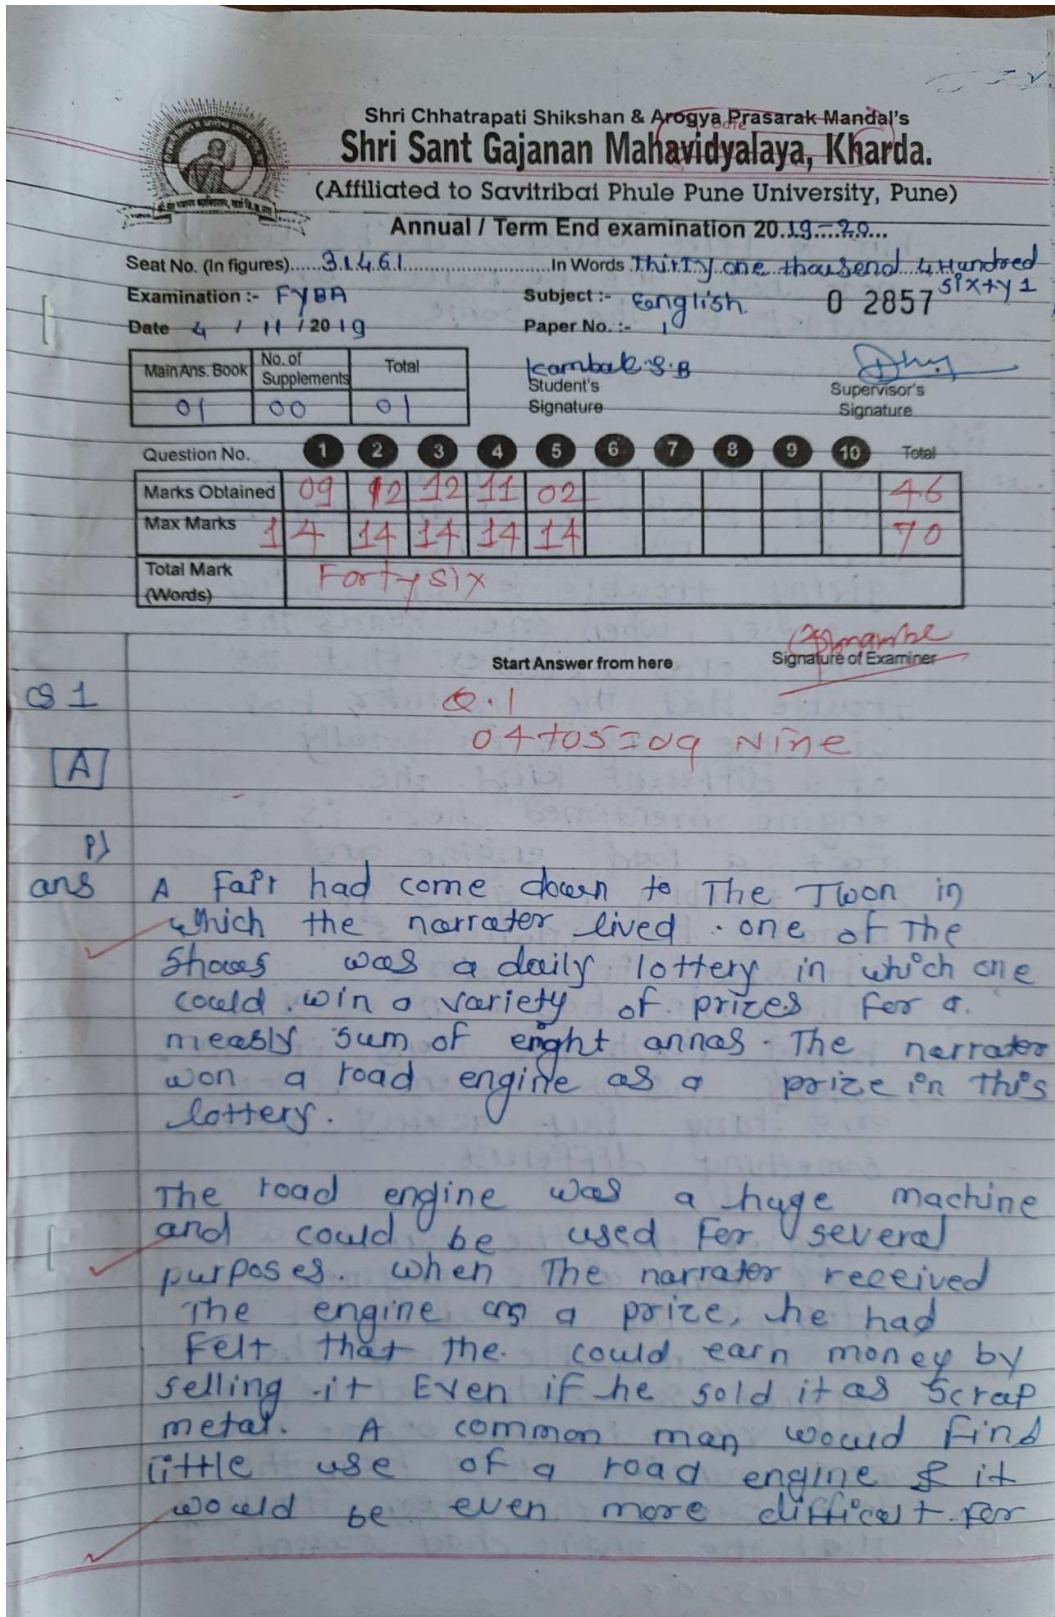 Shri Chhatrapati Shikshan & Arogya Prasarak Mandal's
Shri Sant Gajanan Mahavidyalaya, Kharda.
(Affiliated to Savitribai Phule Pune University, Pune)
Annual / Term End examination 2019-20
Seat No. (In figures) 31461 In Words Thirty one thousend 4 Hundred sixty 1
Examination :- FYBA Subject :- English 0 2857
Date 4 / 11 / 2019 Paper No. :- 1
Main Ans. Book No. of Supplements Total
01 00 01
Kambale S.B
Student's Signature
Supervisor's Signature
Question No. 1 2 3 4 5 6 7 8 9 10 Total
Marks Obtained 09 12 12 11 02 46
Max Marks 14 14 14 14 14 70
Total Mark (Words) Forty six
Start Answer from here Signature of Examiner
Q 1
Q.1
04+05=09 Nine
A
P)
ans A Fair had come down to The Twon in
which the narrater lived . one of The
Shows was a daily lottery in which one
could win a variety of prizes For a
measly sum of enght annas . The narrator
won a road engine as a prize in this
lottery.
The road engine was a huge machine
and could be used For several
purposes. when The narrator received
The engine as a prize, he had
Felt that the. could earn money by
selling it Even if he sold it as Scrap
metal. A common man would Find
little use of a road engine & it
would be even more difficult For